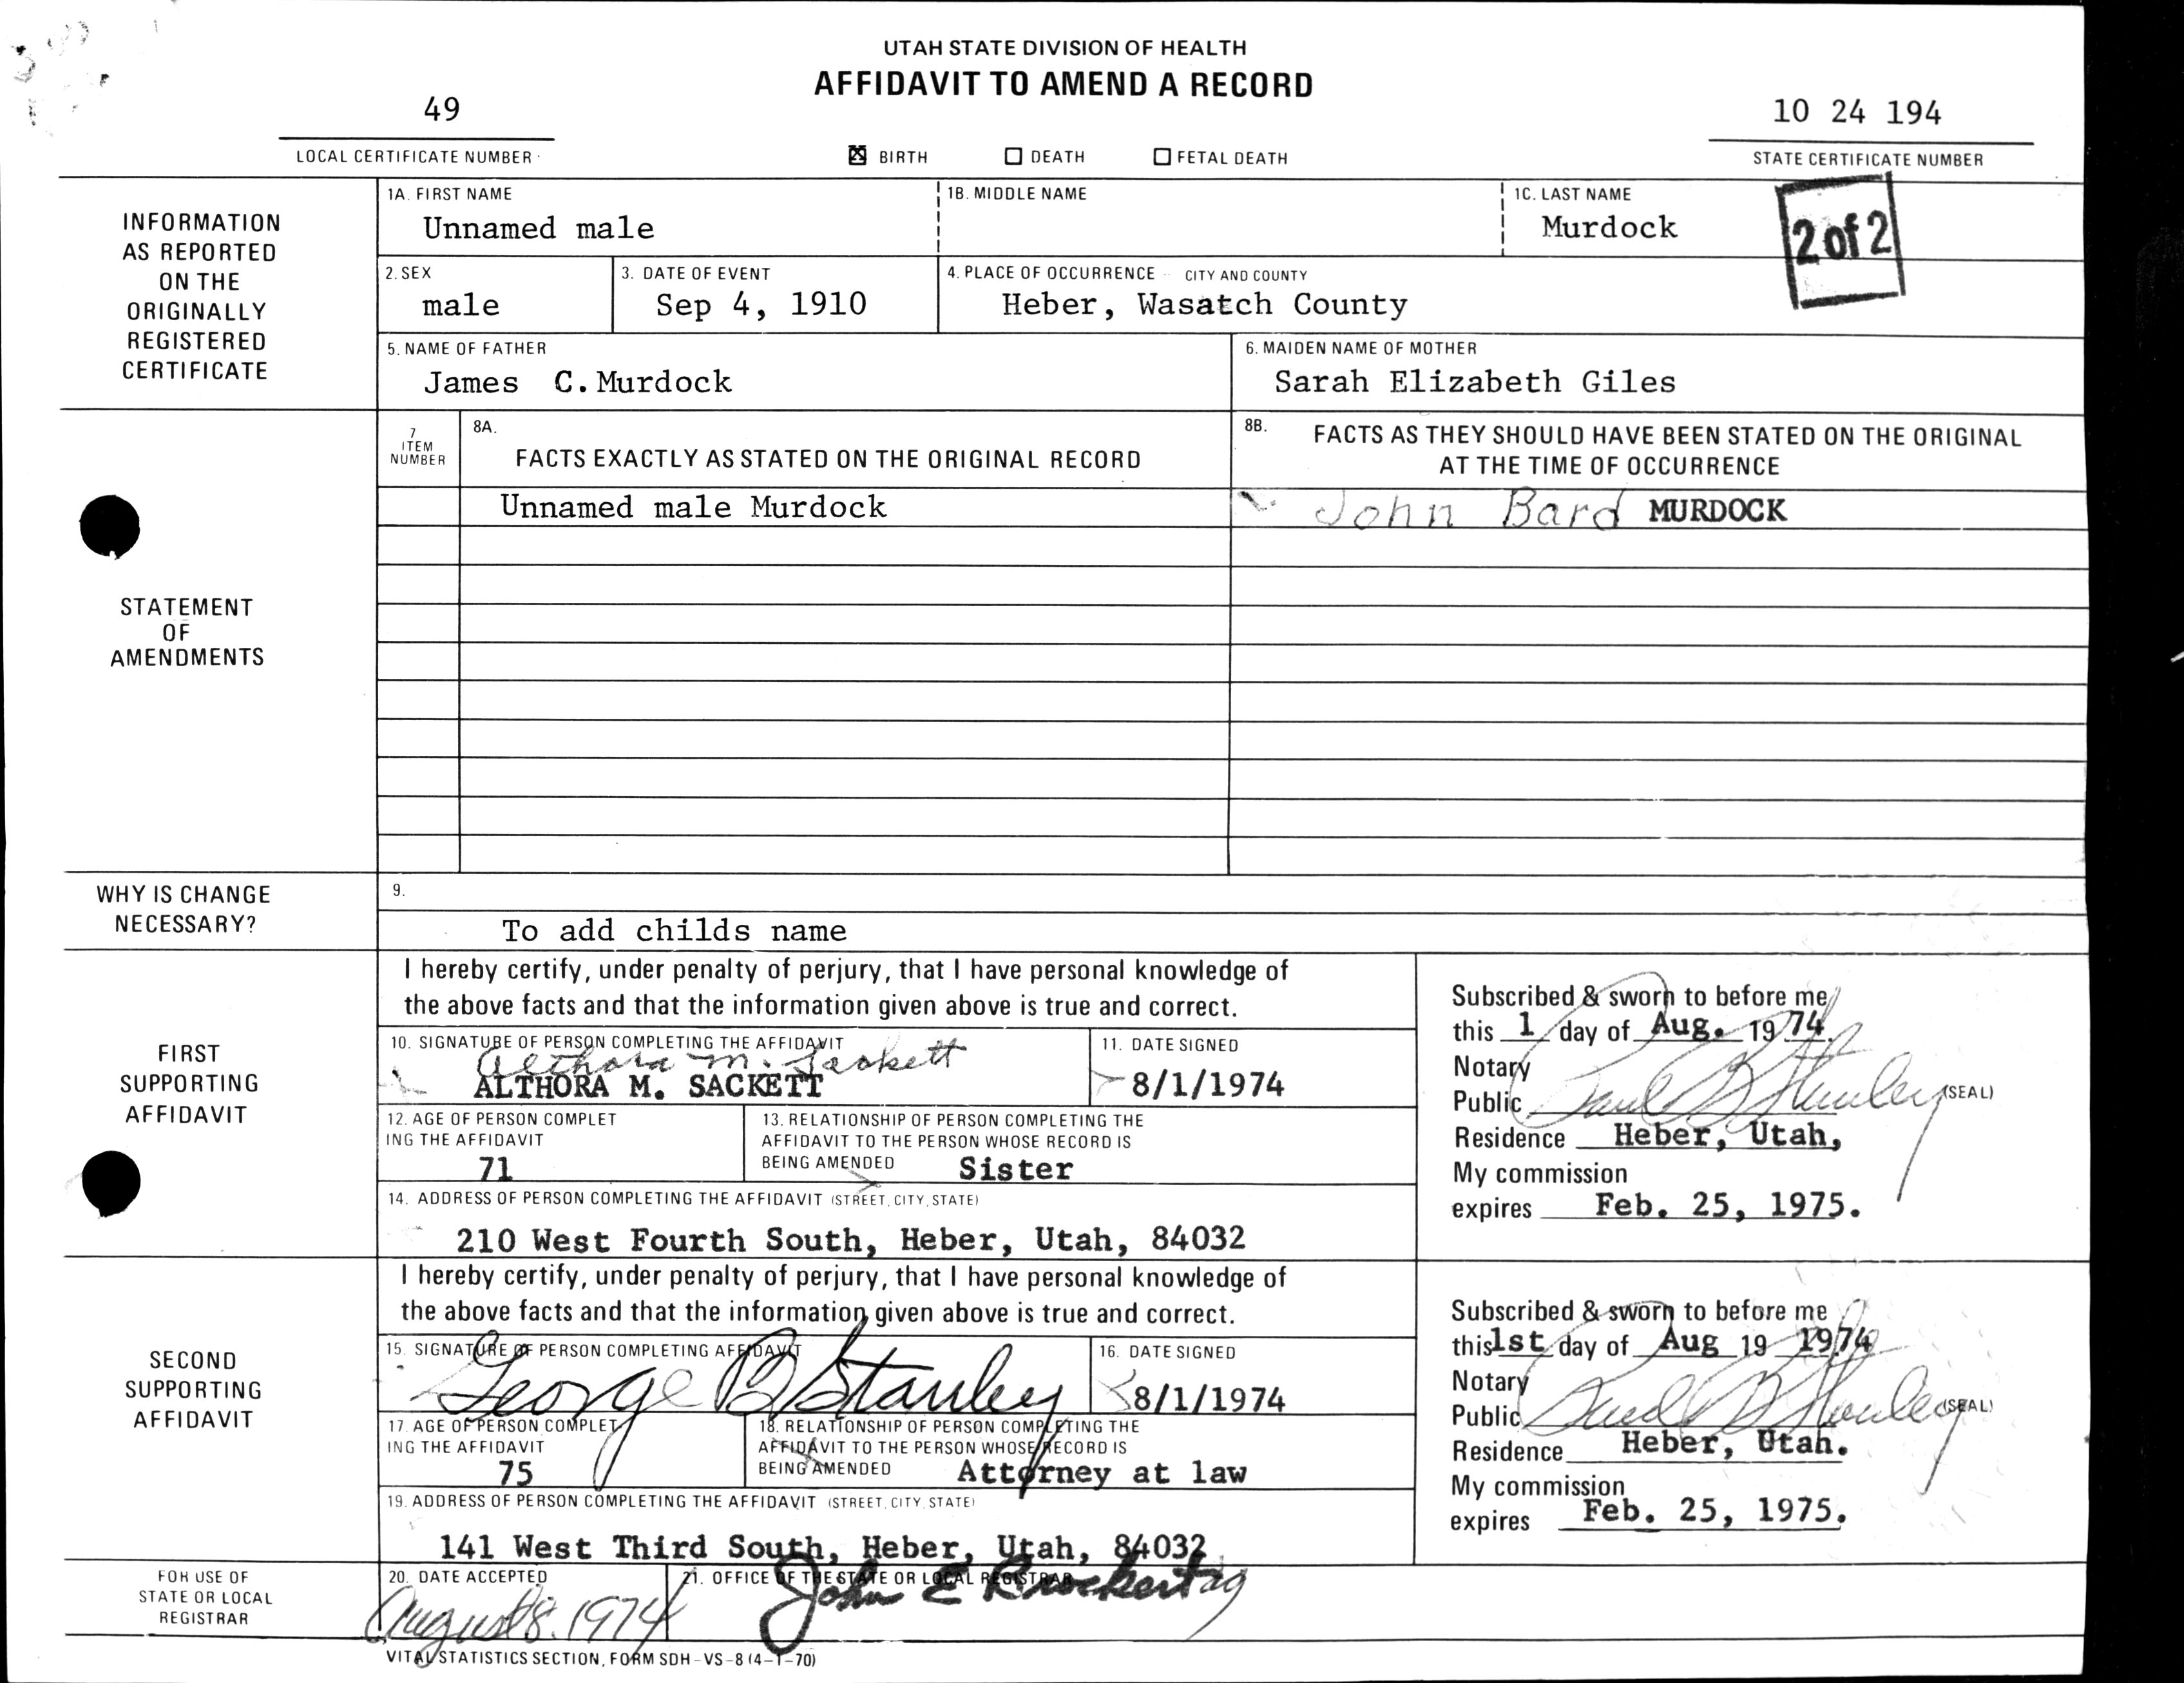 UTAH STATE DIVISION OF HEALTH
AFFIDAVIT TO AMEND A RECORD
49
LOCAL CERTIFICATE NUMBER
☒ BIRTH ☐ DEATH ☐ FETAL DEATH
10 24 194
STATE CERTIFICATE NUMBER
INFORMATION
AS REPORTED
ON THE
ORIGINALLY
REGISTERED
CERTIFICATE
1A. FIRST NAME
Unnamed male
1B. MIDDLE NAME
1C. LAST NAME
Murdock
2 of 2
2. SEX
male
3. DATE OF EVENT
Sep 4, 1910
4. PLACE OF OCCURRENCE - CITY AND COUNTY
Heber, Wasatch County
5. NAME OF FATHER
James C. Murdock
6. MAIDEN NAME OF MOTHER
Sarah Elizabeth Giles
STATEMENT
OF
AMENDMENTS
7
ITEM
NUMBER
8A.
FACTS EXACTLY AS STATED ON THE ORIGINAL RECORD
8B. FACTS AS THEY SHOULD HAVE BEEN STATED ON THE ORIGINAL
AT THE TIME OF OCCURRENCE
Unnamed male Murdock
John Bard MURDOCK
WHY IS CHANGE
NECESSARY?
9.
To add childs name
FIRST
SUPPORTING
AFFIDAVIT
I hereby certify, under penalty of perjury, that I have personal knowledge of
the above facts and that the information given above is true and correct.
10. SIGNATURE OF PERSON COMPLETING THE AFFIDAVIT
Althora M. Sackett
ALTHORA M. SACKETT
11. DATE SIGNED
8/1/1974
12. AGE OF PERSON COMPLET
ING THE AFFIDAVIT
71
13. RELATIONSHIP OF PERSON COMPLETING THE
AFFIDAVIT TO THE PERSON WHOSE RECORD IS
BEING AMENDED Sister
14. ADDRESS OF PERSON COMPLETING THE AFFIDAVIT (STREET, CITY, STATE)
210 West Fourth South, Heber, Utah, 84032
Subscribed & sworn to before me
this 1 day of Aug. 19 74.
Notary
Public (SEAL)
Residence Heber, Utah,
My commission
expires Feb. 25, 1975.
SECOND
SUPPORTING
AFFIDAVIT
I hereby certify, under penalty of perjury, that I have personal knowledge of
the above facts and that the information given above is true and correct.
15. SIGNATURE OF PERSON COMPLETING AFFIDAVIT
George B Stanley
16. DATE SIGNED
8/1/1974
17. AGE OF PERSON COMPLET
ING THE AFFIDAVIT
75
18. RELATIONSHIP OF PERSON COMPLETING THE
AFFIDAVIT TO THE PERSON WHOSE RECORD IS
BEING AMENDED Attorney at law
19. ADDRESS OF PERSON COMPLETING THE AFFIDAVIT (STREET, CITY, STATE)
141 West Third South, Heber, Utah, 84032
Subscribed & sworn to before me
this 1st day of Aug 19 1974
Notary
Public (SEAL)
Residence Heber, Utah.
My commission
expires Feb. 25, 1975.
FOR USE OF
STATE OR LOCAL
REGISTRAR
20. DATE ACCEPTED
August 8, 1974
21. OFFICE OF THE STATE OR LOCAL REGISTRAR
John E Brockert
VITAL STATISTICS SECTION, FORM SDH-VS-8 (4-1-70)